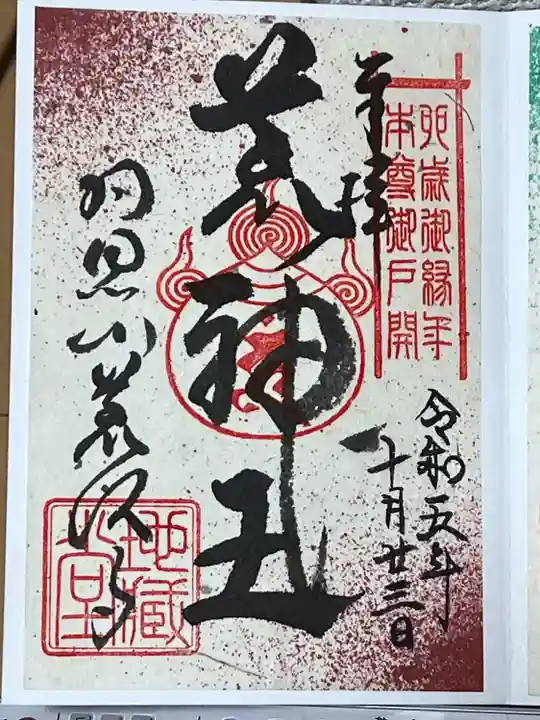 卯歳御縁年
本尊御戸開
奉拝
令和五年
十月廿三日
荒神王
羽黒山荒沢寺
地蔵堂